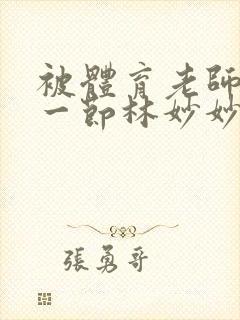 被體育老師
一節林妙妙
張勇哥